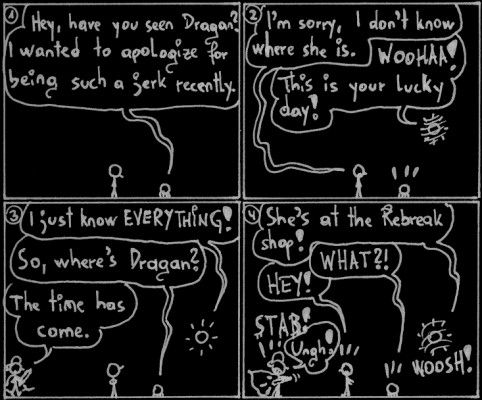 1
Hey, have you seen Dragan?
I wanted to apologize for
being such a jerk recently.
2
I'm sorry, I don't know
where she is.
WOOHAA!
This is your lucky
day!
3
I just know EVERYTHING!
So, where's Dragan?
The time has
come.
4
She's at the Rebreak
shop!
WHAT?!
HEY!
STAB!
Ungh!
WOOSH!